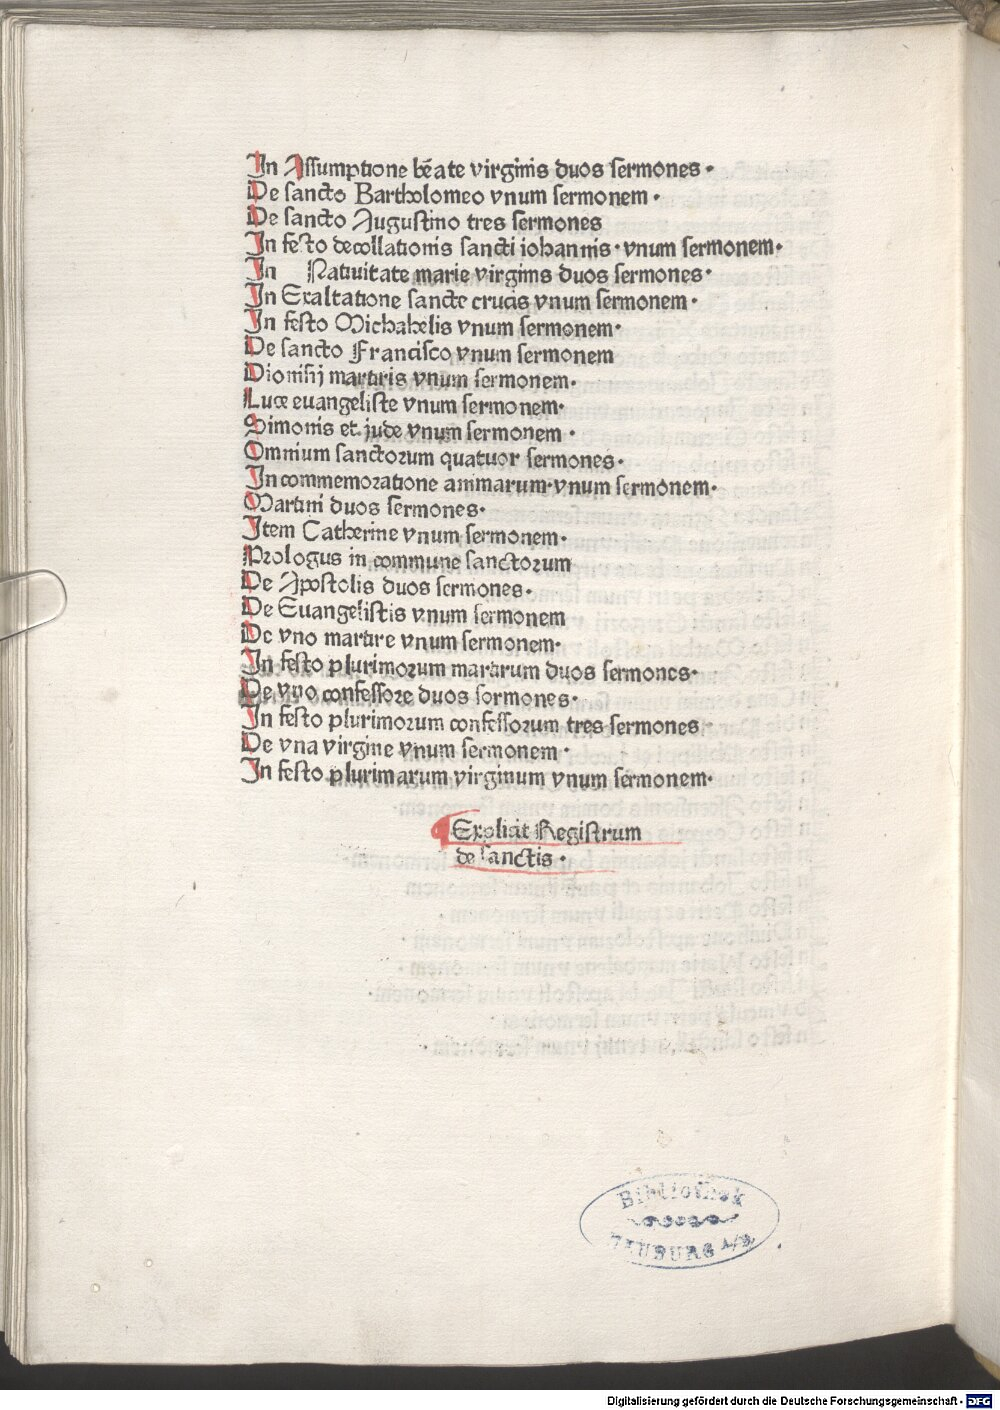 In Assumptione bēate virginis duos sermones.
De sancto Bartholomeo vnum sermonem.
De sancto Augustino tres sermones
In festo decollationis sancti iohannis. vnum sermonem.
In Natiuitate marie virginis duos sermones.
In Exaltatione sancte crucis vnum sermonem.
In festo Michahelis vnum sermonem.
De sancto Francisco vnum sermonem
Dionisij martiris vnum sermonem.
Luce euangeliste vnum sermonem.
Simonis et iude vnum sermonem.
Omnium sanctorum quatuor sermones.
In commemoratione animarum. vnum sermonem.
Martini duos sermones.
Item Catherine vnum sermonem.
Prologus in commune sanctorum
De Apostolis duos sermones.
De Euangelistis vnum sermonem
De vno martire vnum sermonem.
In festo plurimorum martirum duos sermones.
De vno confessore duos sormones.
In festo plurimorum confessorum tres sermones.
De vna virgine vnum sermonem.
In festo plurimarum virginum vnum sermonem.
Explicit Registrum
de sanctis.
Bibliothek
Digitalisierung gefördert durch die Deutsche Forschungsgemeinschaft - DFG